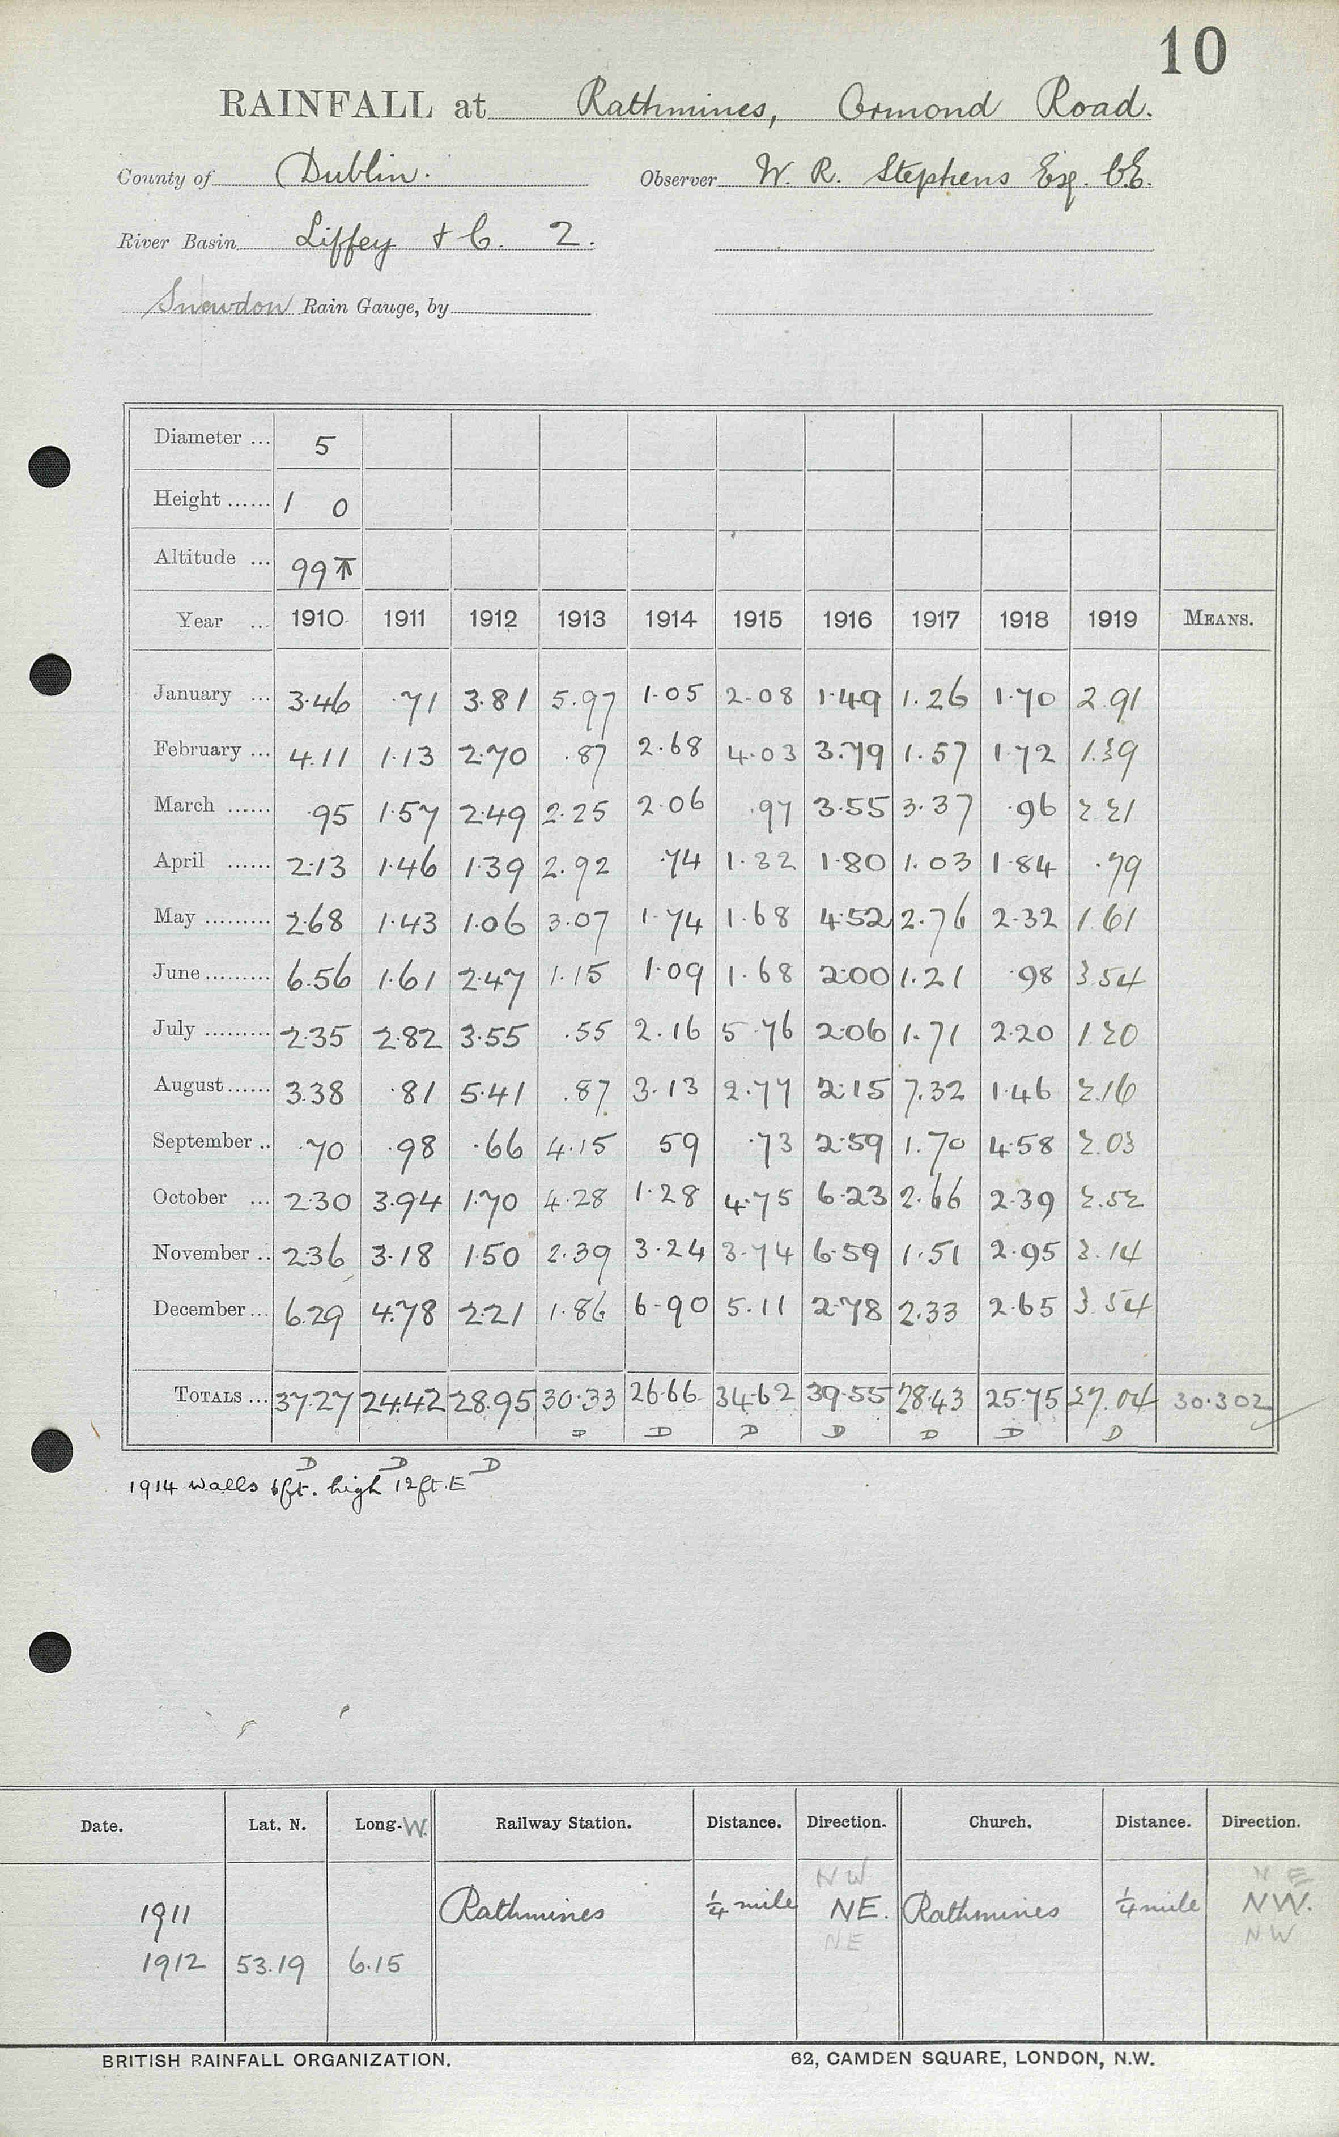 10
RAINFALL at Rathmines, Ormond Road.
County of Dublin. Observer W. R. Stephens Esq. C.E.
River Basin Liffey & C. 2.
Snowdon Rain Gauge, by
Diameter ... 5
Height ...... 1 0
Altitude ... 99
Year ... 1910 1911 1912 1913 1914 1915 1916 1917 1918 1919 MEANS.
January ... 3.46 .71 3.81 5.97 1.05 2.08 1.49 1.26 1.70 2.91
February ... 4.11 1.13 2.70 .87 2.68 4.03 3.79 1.57 1.72 1.39
March ...... .95 1.57 2.49 2.25 2.06 .97 3.55 3.37 .96 2.21
April ...... 2.13 1.46 1.39 2.92 .74 1.32 1.80 1.03 1.84 .79
May ......... 2.68 1.43 1.06 3.07 1.74 1.68 4.52 2.76 2.32 1.61
June ......... 6.56 1.61 2.47 1.15 1.09 1.68 2.00 1.21 .98 3.54
July ......... 2.35 2.82 3.55 .55 2.16 5.76 2.06 1.71 2.20 1.20
August ...... 3.38 .81 5.41 .87 3.13 2.77 2.15 7.32 1.46 2.16
September .. .70 .98 .66 4.15 59 .73 2.59 1.70 4.58 2.03
October ... 2.30 3.94 1.70 4.28 1.28 4.75 6.23 2.66 2.39 2.52
November .. 2.36 3.18 1.50 2.39 3.24 3.74 6.59 1.51 2.95 3.14
December ... 6.29 4.78 2.21 1.86 6.90 5.11 2.78 2.33 2.65 3.54
TOTALS ... 37.27 24.42 28.95 30.33 26.66 34.62 39.55 28.43 25.75 27.04 30.302
D D D D D D D
D D D
1914 Walls 6ft. high 12ft. E
Date. Lat. N. Long. W. Railway Station. Distance. Direction. Church. Distance. Direction.
NW NE
1911 Rathmines 1/4 mile NE. Rathmines 1/4 mile NW.
NE NW
1912 53.19 6.15
BRITISH RAINFALL ORGANIZATION. 62, CAMDEN SQUARE, LONDON, N.W.